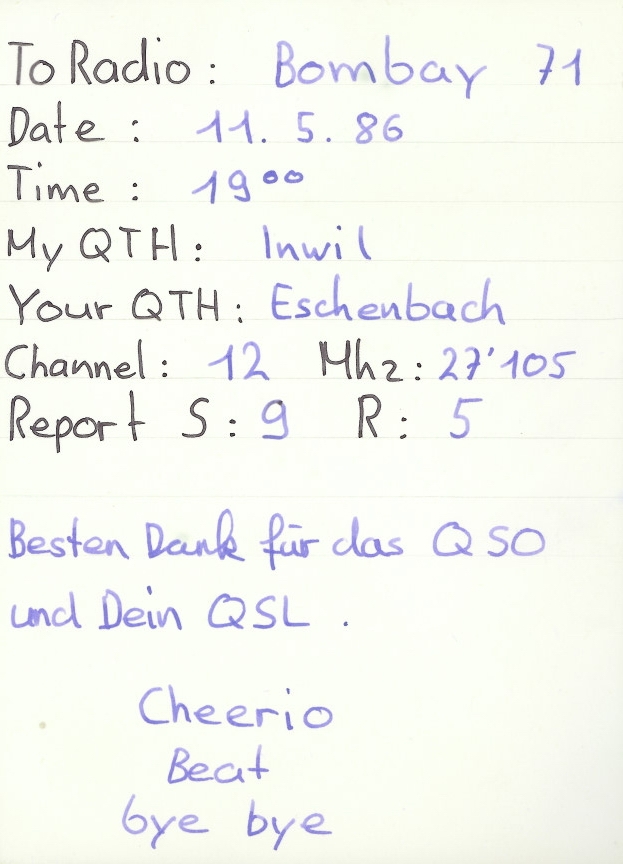 To Radio : Bombay 71
Date : 11. 5. 86
Time : 19⁰⁰
My QTH : Inwil
Your QTH : Eschenbach
Channel : 12 Mhz : 27'105
Report S : 9 R : 5
Besten Dank für das QSO
und Dein QSL .
Cheerio
Beat
bye bye